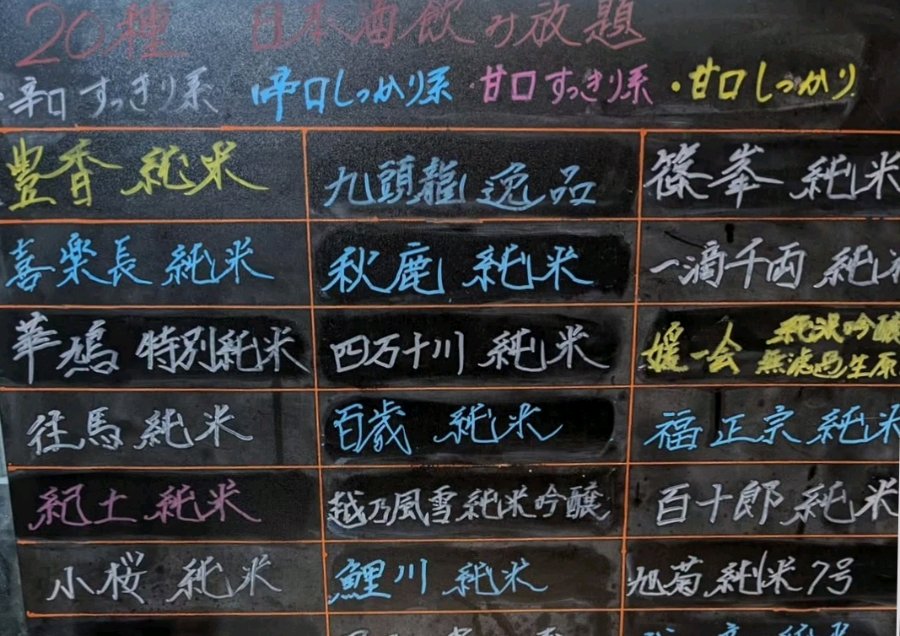 20種 日本酒飲み放題
・辛口すっきり系 ・辛口しっかり系 ・甘口すっきり系 ・甘口しっかり
豊香 純米 九頭龍 逸品 篠峯 純米
喜楽長 純米 秋鹿 純米 一滴千両 純米
華鳩 特別純米 四万十川 純米 媛一会 純米吟醸 無濾過生原
往馬 純米 百歳 純米 福正宗 純米
紀土 純米 越乃風雪 純米吟醸 百十郎 純米
小桜 純米 鯉川 純米 旭菊 純米7号